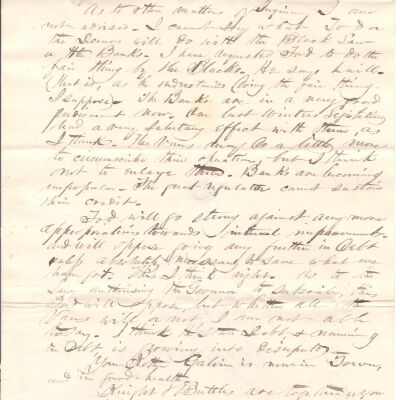 As to other matters of Inquiry I am
not advised. I cannot say what Tod or
the Democs will do with the Black Law
or the Banks. I have requested Tod to do the
fair thing by the Blacks. He says he will
that is, as he understands doing the fair thing
I suppose. The Banks are in a very good
predicament now. Our last Winters Legislation
had a very salutary effect with them, as
I think. The may do a little more
to circumscribe their , but I think
not to enlarge them. Banks are becoming
unpopular. The great regulator cannot sustain
their credit.
Tod will go strong against any more
appropriations towards internal improvements
and will oppose going any further in Debt
unless absolutely necessary to save what we
have got. This I think right. As to the
Law authorising the Governor to Subscribe, this
Tod will oppose, but whether all the
will or not I am not able
to say. I think State Debt & running
in Debt is growing into disrepute.
Your Brother Galvin is now in Town,
and in good health.
Knight & Buttles are